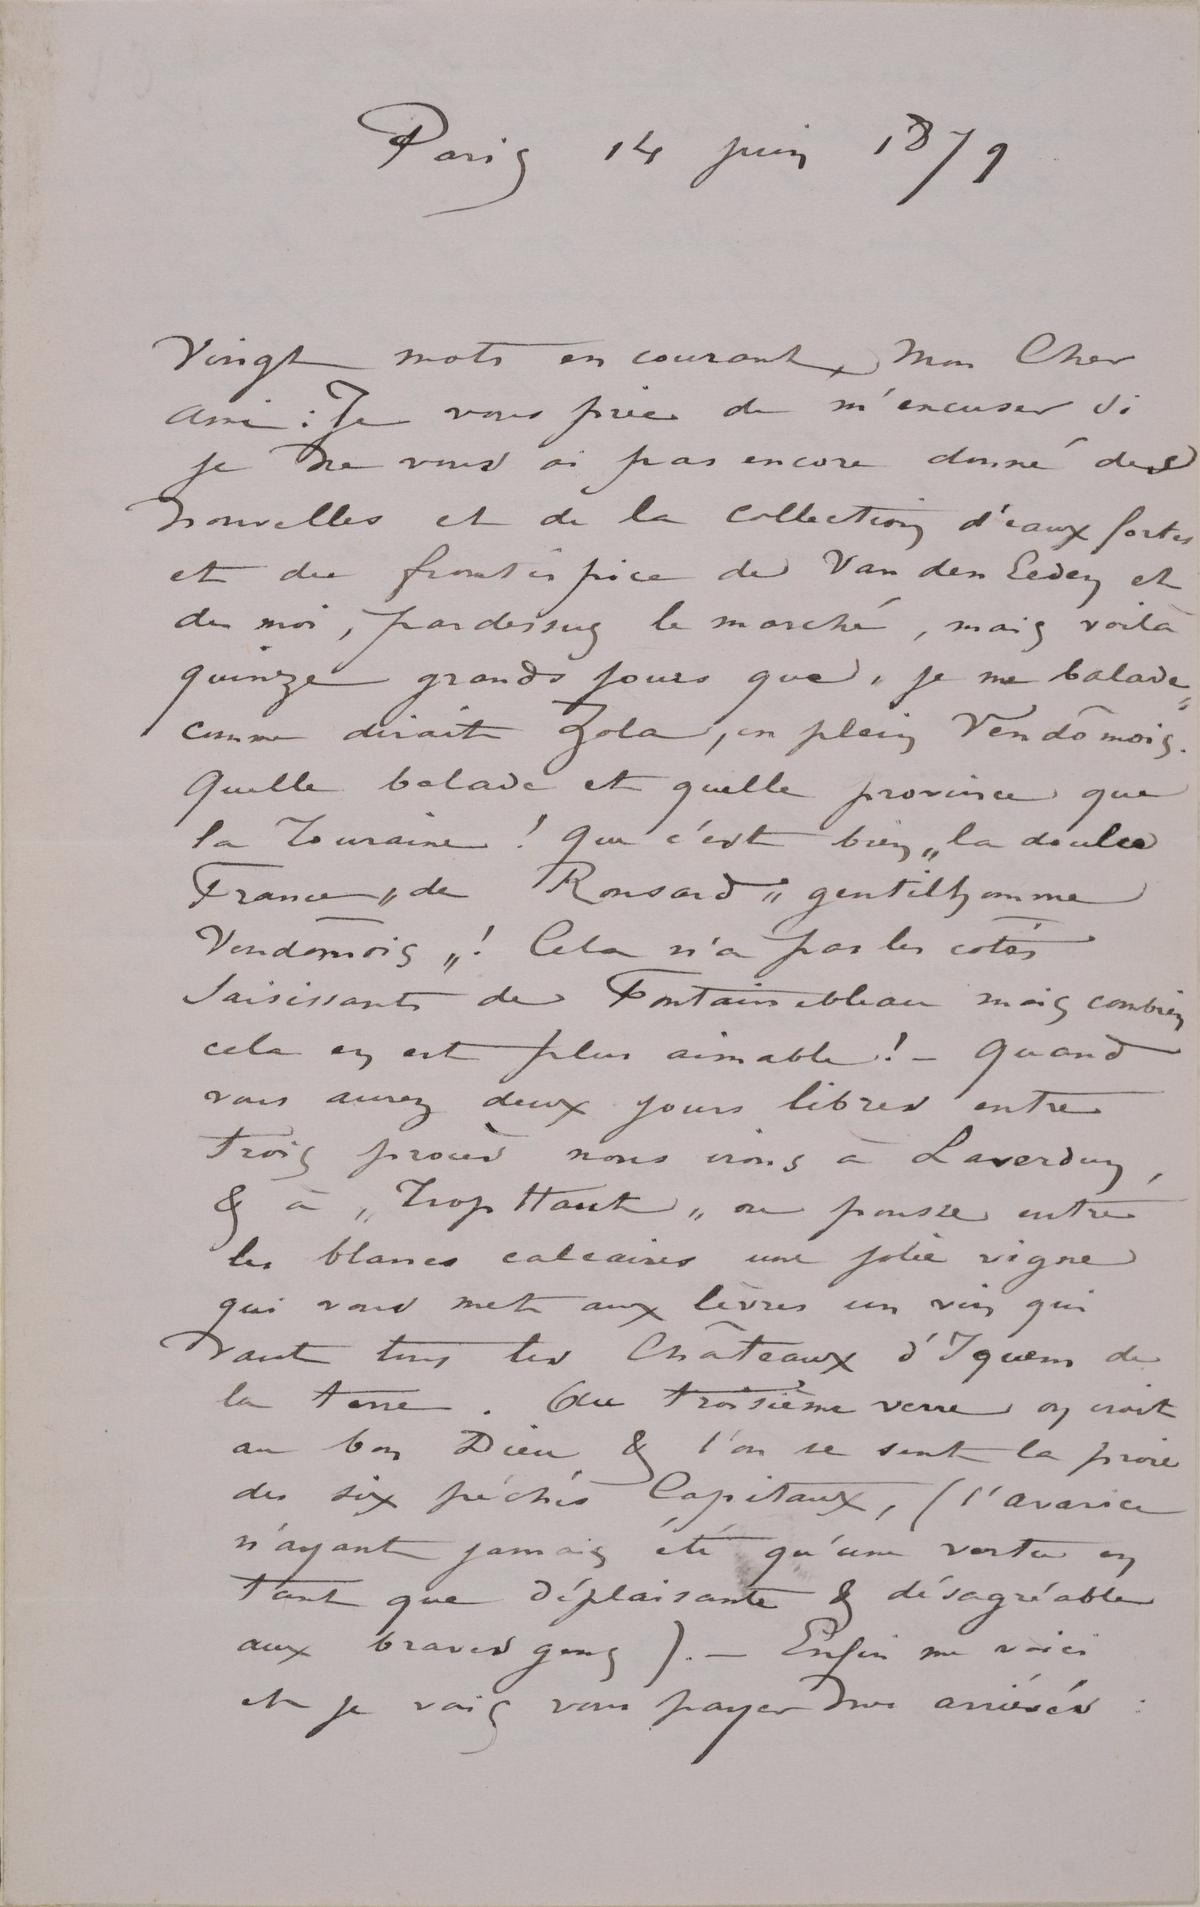 Paris 14 juin 1879
Vingt mots en courant, Mon Cher
Ami : Je vous prie de m'excuser si
je ne vous ai pas encore donné des
nouvelles et de la collection d'eaux fortes
et du frontispice de Van den Eeden et
de moi, pardessus le marché, mais voilà
quinze grands jours que „ je me balade „
comme dirait Zola, en plein Vendômois.
Quelle balade et quelle province que
la Touraine ! Que c'est bien „ la doulce
France „ de Ronsard „ gentilhomme
Vendômois „ ! Cela n'a pas les cotés
saisissants de Fontainebleau mais combien
cela en est plus aimable ! – Quand
vous aurez deux jours libres entre
trois procès nous irons à Laverduy,
& à „ Trop Haut „ ou pousse entre
les blancs calcaires une jolie vigne
qui vous met aux lèvres un vin qui
vaut tous les Châteaux d'Iquem de
la terre . Au troisième verre on croit
au bon Dieu & l'on se sent la proie
des six péchés Capitaux, (l'avarice
n'ayant jamais été qu'une vertu en
tant que déplaisante & désagréable
aux braves gens ). – Enfin me voici
et je vais vous payer mes arriérés :